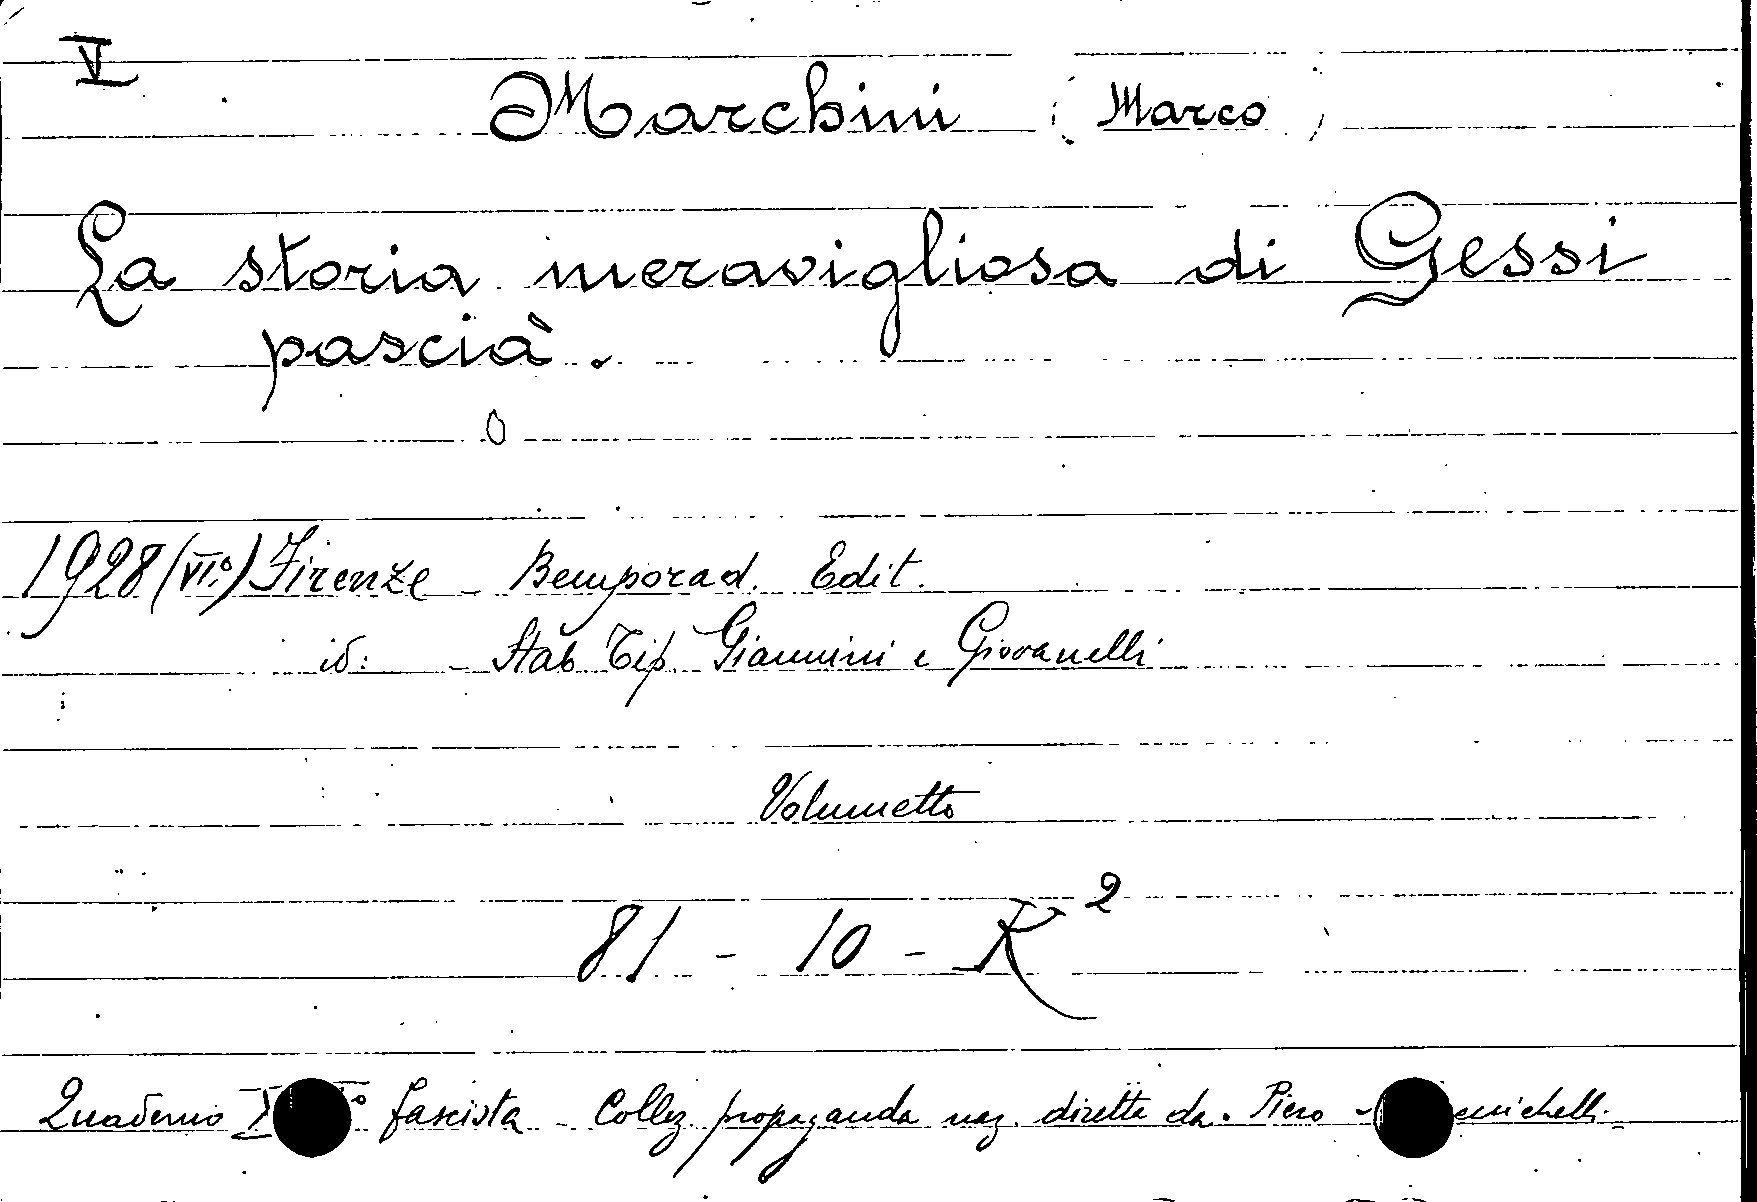 V
Marchini (Marco)
La storia meravigliosa di Gessi
pascià.
1928 (VI.°) Firenze - Bemporad. Edit.
id: - Stab Tip. Giannini e Giovanelli
Volumetto
81 - 10 - K²
Quaderno fascista - Collez propaganda naz. diretta da. Piero